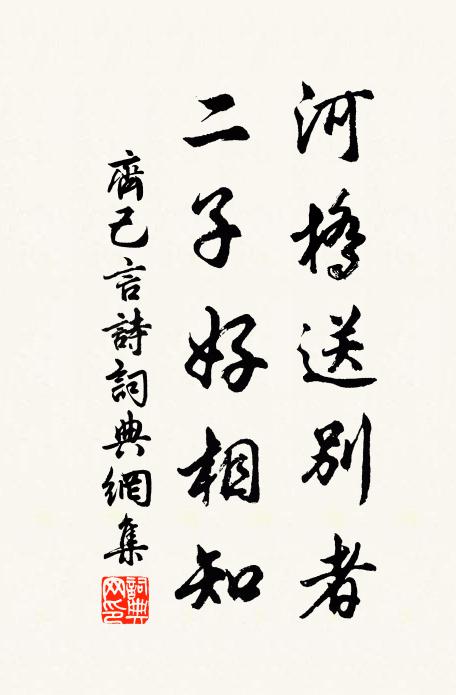 河橋送別者
二子好相知
齊己言詩詞典網集
詞典
網印